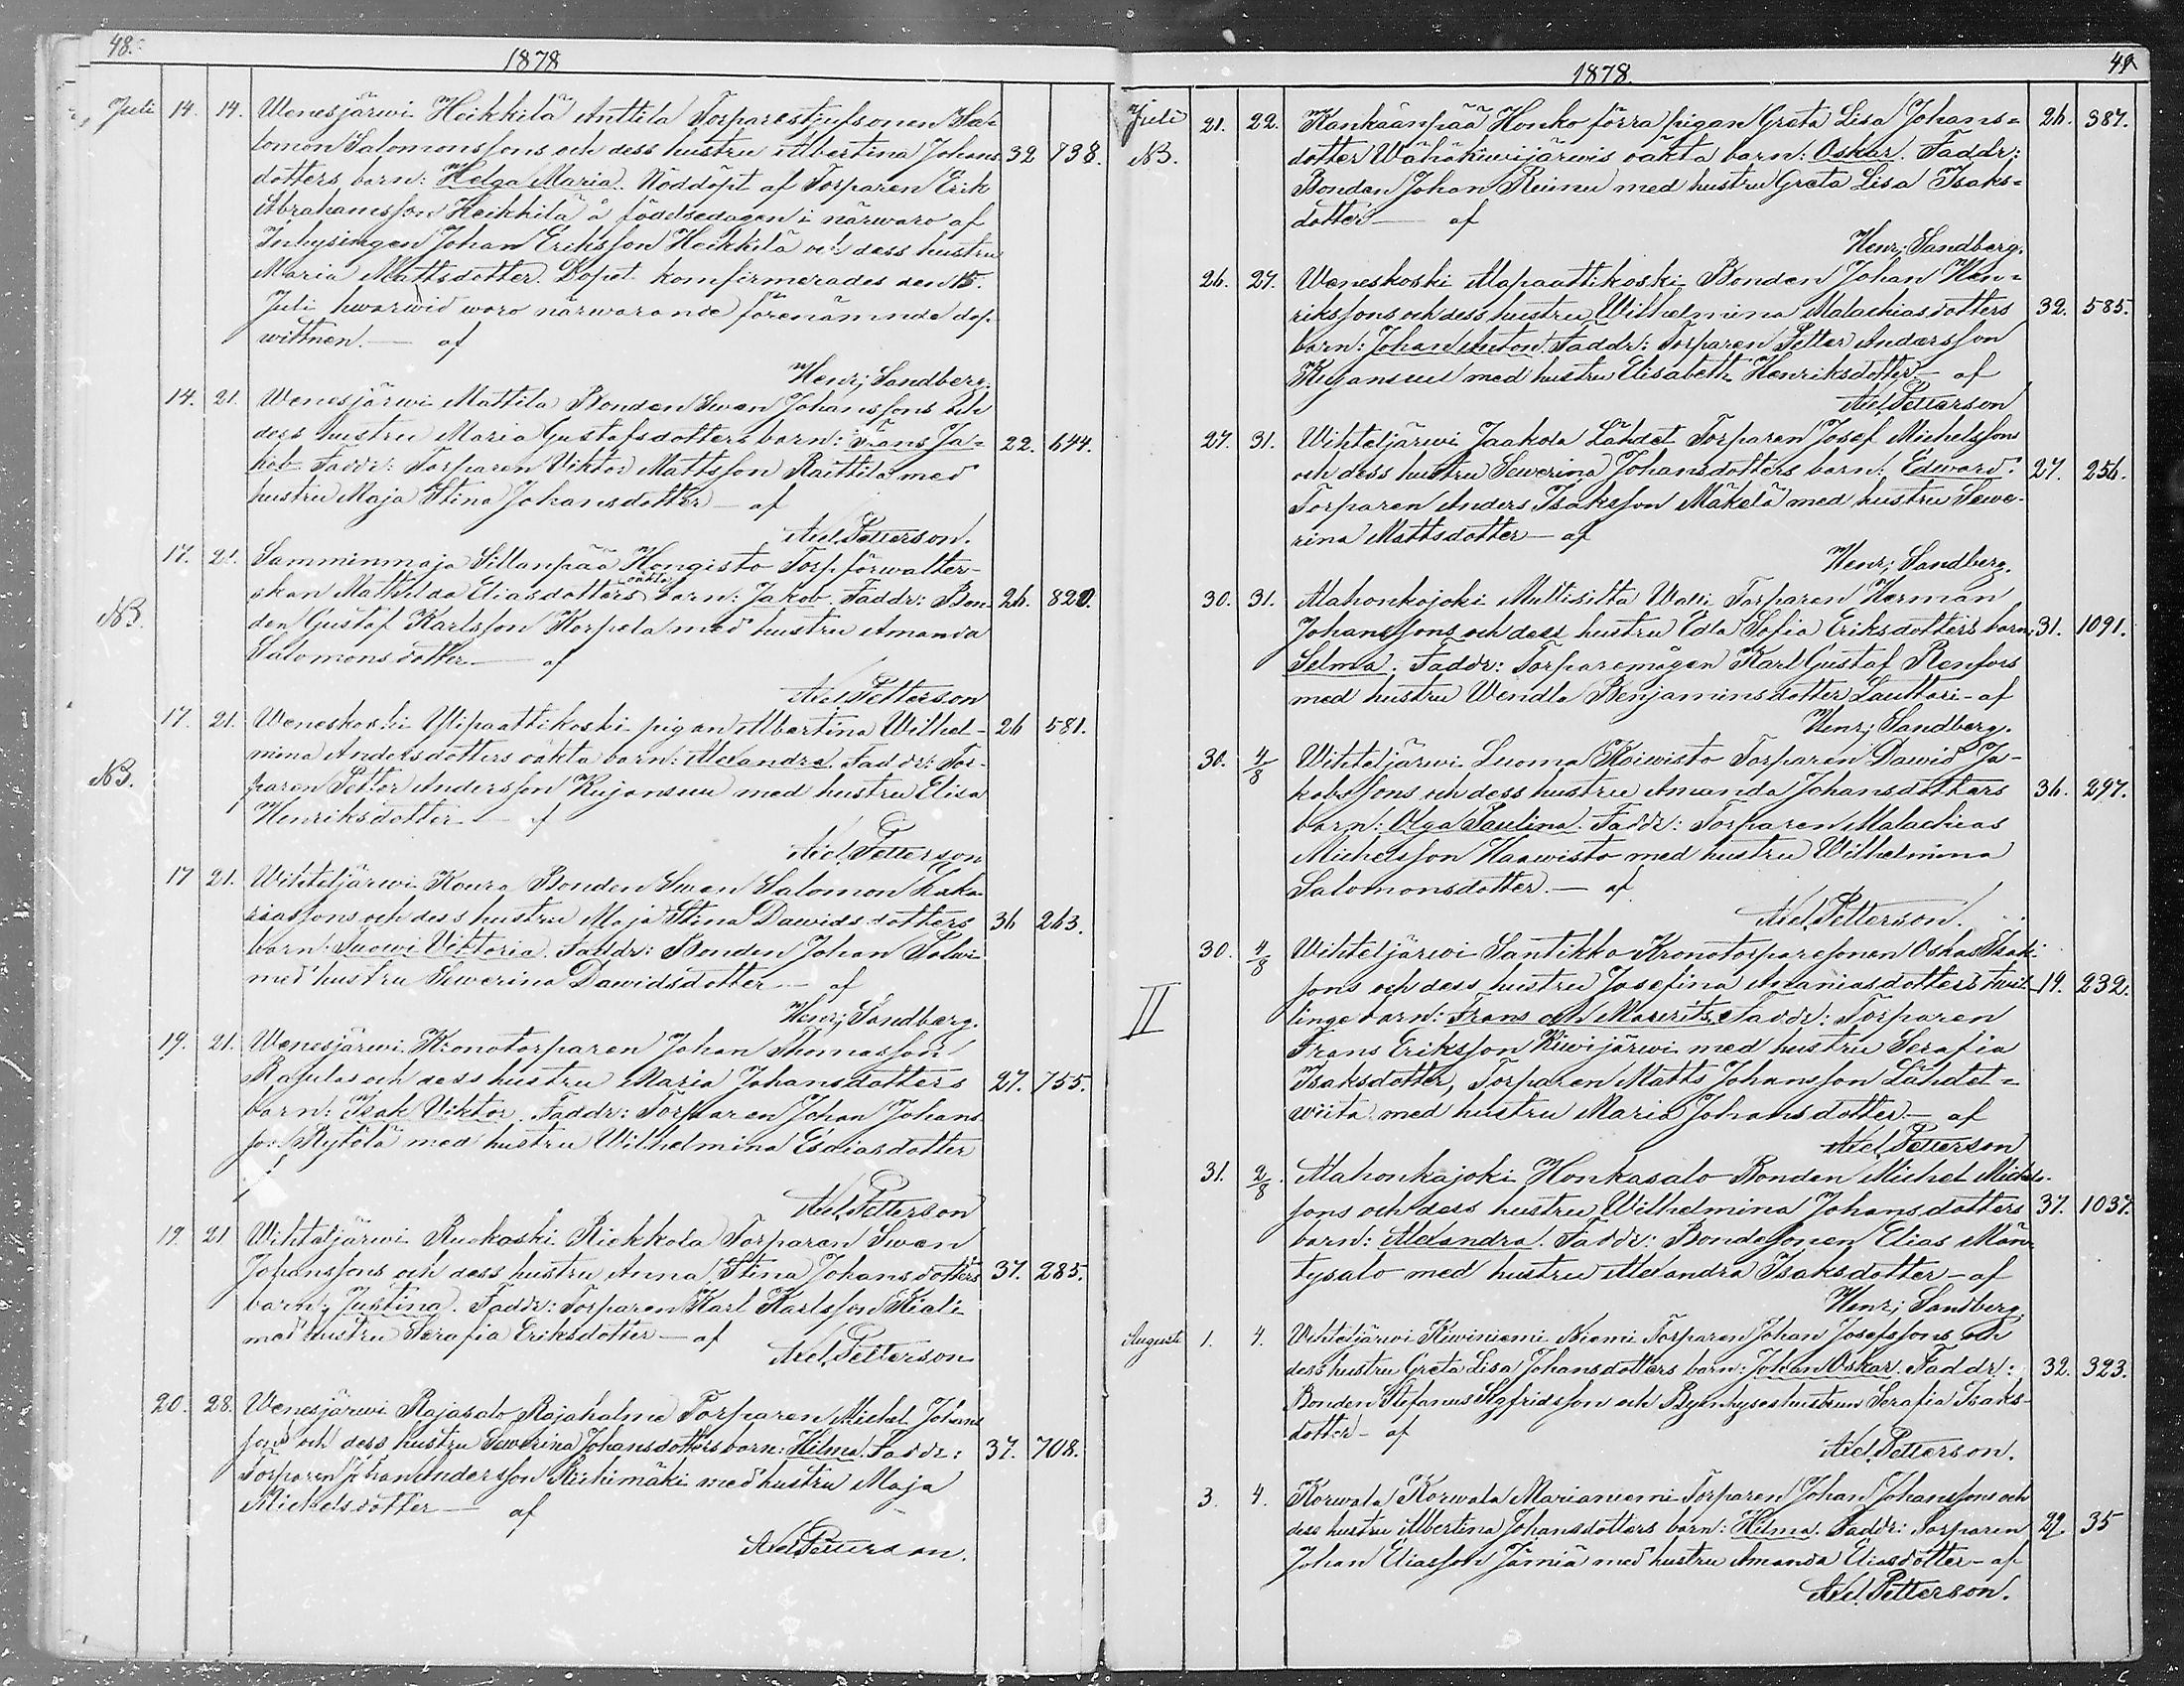 48.
1878
Juli 14. 14. Wenesjärwi Heikkilä Anttila Torparestjufsonen Sa-
lomon Salomonssons och dess hustru Albertina Johans- 32 738.
dotters barn: Helga Maria. Nöddöpt af Torparen Erik
Abrahamsson Heikkilä å födelsedagen i närwaro af
Inhysingen Johan Eriksson Heikkilä och dess hustru
Maria Mattsdotter. Dopet komfirmerades den 15.
Juli hwarwid woro närwarande förenämnde dop-
wittnen. — af
Henr; Sandberg.
14. 21. Wenesjärwi Mattila Bonden Swen Johanssons och
dess hustru Maria Gustafsdotters barn: Frans Ja- 22. 644.
kob Faddr: Torparen Viktor Mattsson Raittila med
hustru Maja Stina Johansdotter — af
Axel Petterson.
17. 21. Samminmaja Sillanpää Hongisto Torp. förwalter-
skan Mathilda Eliasdotters oäkta barn: Jakob. Faddr: Bon- 26. 820.
NB. den Gustaf Karlsson Korpela med hustru Amanda
Salomonsdotter — af
Axel Petterson
17. 21. Weneskoski Ylipaattikoski pigan Albertina Wilhel- 26 581.
mina Andersdotters oäkta barn: Alexandra. Faddr: Tor-
NB. paren Petter Andersson Kujansuu med hustru Elisa
Henriksdotter — af
Axel Petterson
17 21. Wihteljärwi Koura Bonden Swen Salomon Saka-
riassons och dess hustru Maja Stina Dawidsdotters 36 263.
barn: Suowi Viktoria. Faddr: Bonden Johan Salwi
med hustru Sewerina Dawidsdotter — af
Henr; Sandberg.
19. 21. Wenesjärwi Kronotorparen Johan Thomasson
Rajulas och dess hustru Maria Johansdotters 27. 755.
barn: Isak Viktor. Faddr: Torparen Johan Johans-
son Rytölä med hustru Wilhelmina Esaiasdotter
Axel Petterson
19. 21 Wihteljärwi Ruokoski Riekkola Torparen Swen
Johanssons och dess hustru Anna Stina Johansdotters 37. 285.
barn: Justina. Faddr: Torparen Karl Karlsson Kiali
med hustru Serafia Eriksdotter — af
Axel Petterson
20. 28. Wenesjärwi Rajasalo Rajahalme Torparen Michel Johans-
sons och dess hustru Sewerina Johansdotters barn: Hilma. Faddr: 37. 708.
Torparen Johan Andersson Riihimäki med hustru Maja
Michelsdotter — af
Axel Petterson.
49
1878.
Juli 21. 22. Kankäänpää Honko förra pigan Greta Lisa Johans- 26. 387.
NB. dotter Wähäkiwijärwis oäkta barn: Oskar. Faddr:
Bonden Johan Reinu med hustru Greta Lisa Isaks-
dotter — af
Henr; Sandberg.
26. 27. Weneskoski Alapaattikoski Bonden Johan Hen-
rikssons och dess hustru Wilhelmina Malachiasdotters 32. 585.
barn: Johan Anton. Faddr: Torparen Petter Andersson
Kujansuu med hustru Elisabeth Henriksdotter — af
Axel Petterson
27. 31. Wihteljärwi Jaakola Lähdet Torparen Josef Michelssons
och dess hustru Sewerina Johansdotters barn: Edward. 27. 256.
Torparen Anders Isaksson Mäkelä med hustru Sewe-
rina Mattsdotter — af
Henr; Sandberg.
30. 31. Alahonkojoki Multisilta Walli Torparen Herman
Johanssons och dess hustru Edla Sofia Eriksdotters barn: 31. 1091.
Selma. Faddr: Torparemågen Karl Gustaf Renfors
med hustru Wendla Benjaminsdotter Lauttari - af
Henr; Sandberg.
30. 4/8 Wihteljärwi Luoma Koiwisto Torparen Dawid Ja-
kobssons och dess hustru Amanda Johansdotters 36. 297.
barn: Olga Paulina. Faddr: Torparen Malachias
Michelsson Haawisto med hustru Wilhelmina
Salomonsdotter. — af
Axel Petterson.
30. 4/8 Wihteljärwi Santikko Kronotorparesonen Oskar Isak-
sons och dess hustru Josefina Ananiasdotters twil- 19. 232.
II linge barn: Frans och Mauritz. Faddr: Torparen
Frans Eriksson Kiwijärwi med hustru Serafia
Isaksdotter, Torparen Matts Johansson Lähdet-
wiita med hustru Maria Johansdotter — af
Axel Petterson
31. 2/8. Alahonkajoki Honkasalo Bonden Michel Michels-
sons och dess hustru Wilhelmina Johansdotters 37. 1037.
barn: Alexandra. Faddr: Bondesonen Elias Män-
tysalo med hustru Alexandra Isaksdotter - af
Henr; Sandberg.
Augusti 1. 4. Wihteljärwi Kiwiniemi Niemi Torparen Johan Josefssons och
dess hustru Greta Lisa Johansdotters barn: Johan Oskar. Faddr: 32. 323.
Bonden Stefanus Sigfridsson och Byinhyseshustrun Serafia Isaks-
dotter - af
Axel Petterson.
3. 4. Korwala Korwala Marianiemi Torparen Johan Johanssons och
dess hustru Albertina Johansdotters barn: Hilma. Faddr: Torparen 29. 35
Johan Eliasson Jämiä med hustru Amanda Eliasdotter - af
Axel Petterson.